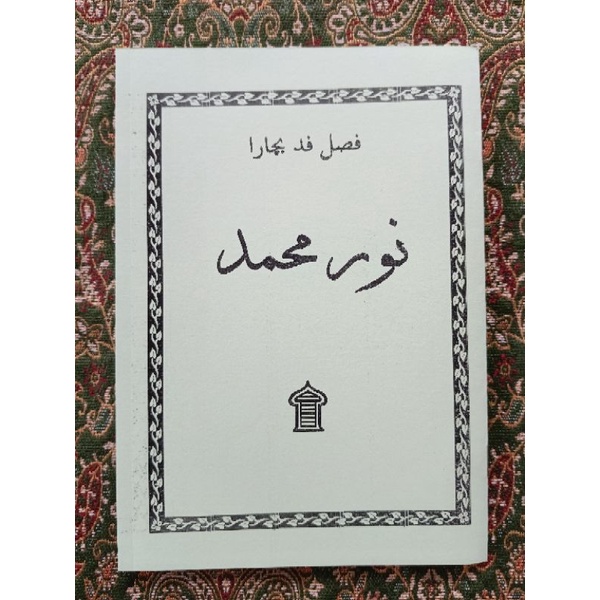 فصل فد بچارا
نور محمد